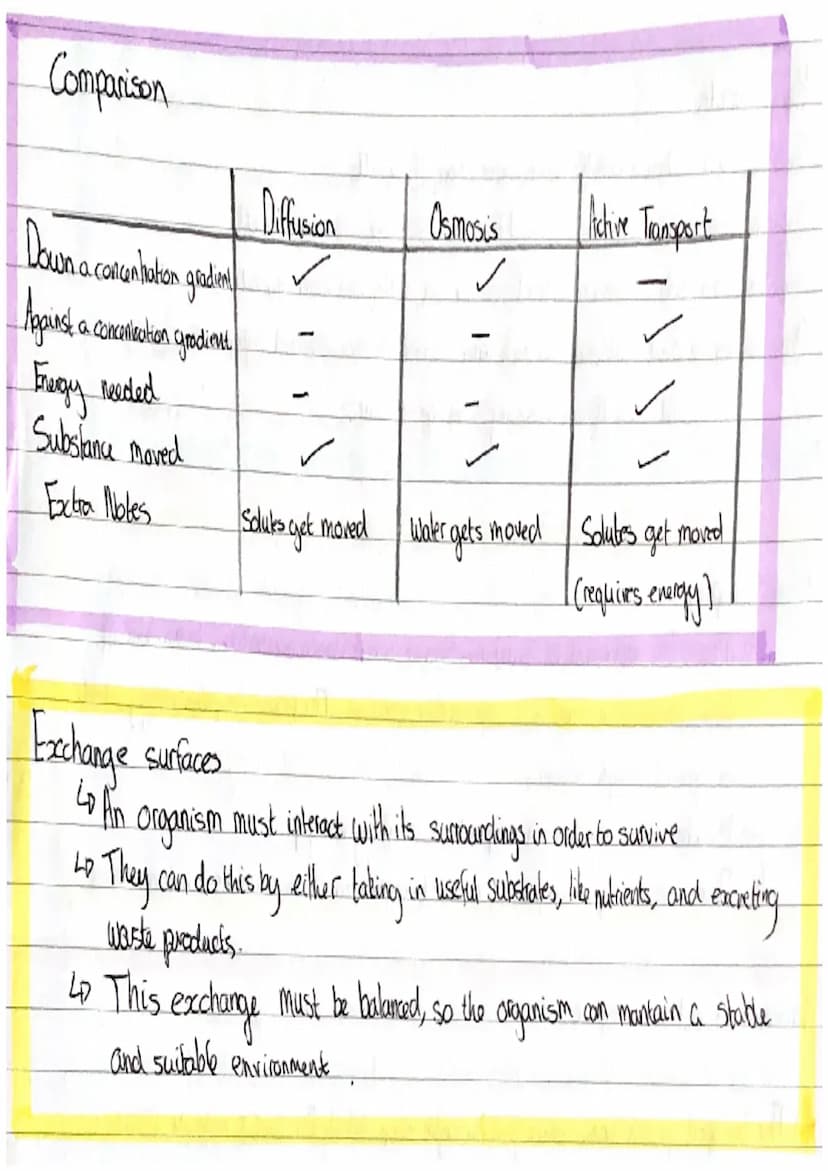 Comparison
Diffusion Osmosis Active Transport
Down a concentration gradient ✓ ✓ –
Against a concentration gradient – – ✓
Energy needed – – ✓
Substance moved ✓ ✓ ✓
Extra Notes Solutes get moved Water gets moved Solutes get moved
(requires energy)
Exchange surfaces
↳ An organism must interact with its surroundings in order to survive
↳ They can do this by either taking in useful substrates, like nutrients, and excreting
waste products.
↳ This exchange must be balanced, so the organism can mantain a stable
and suitable environment.